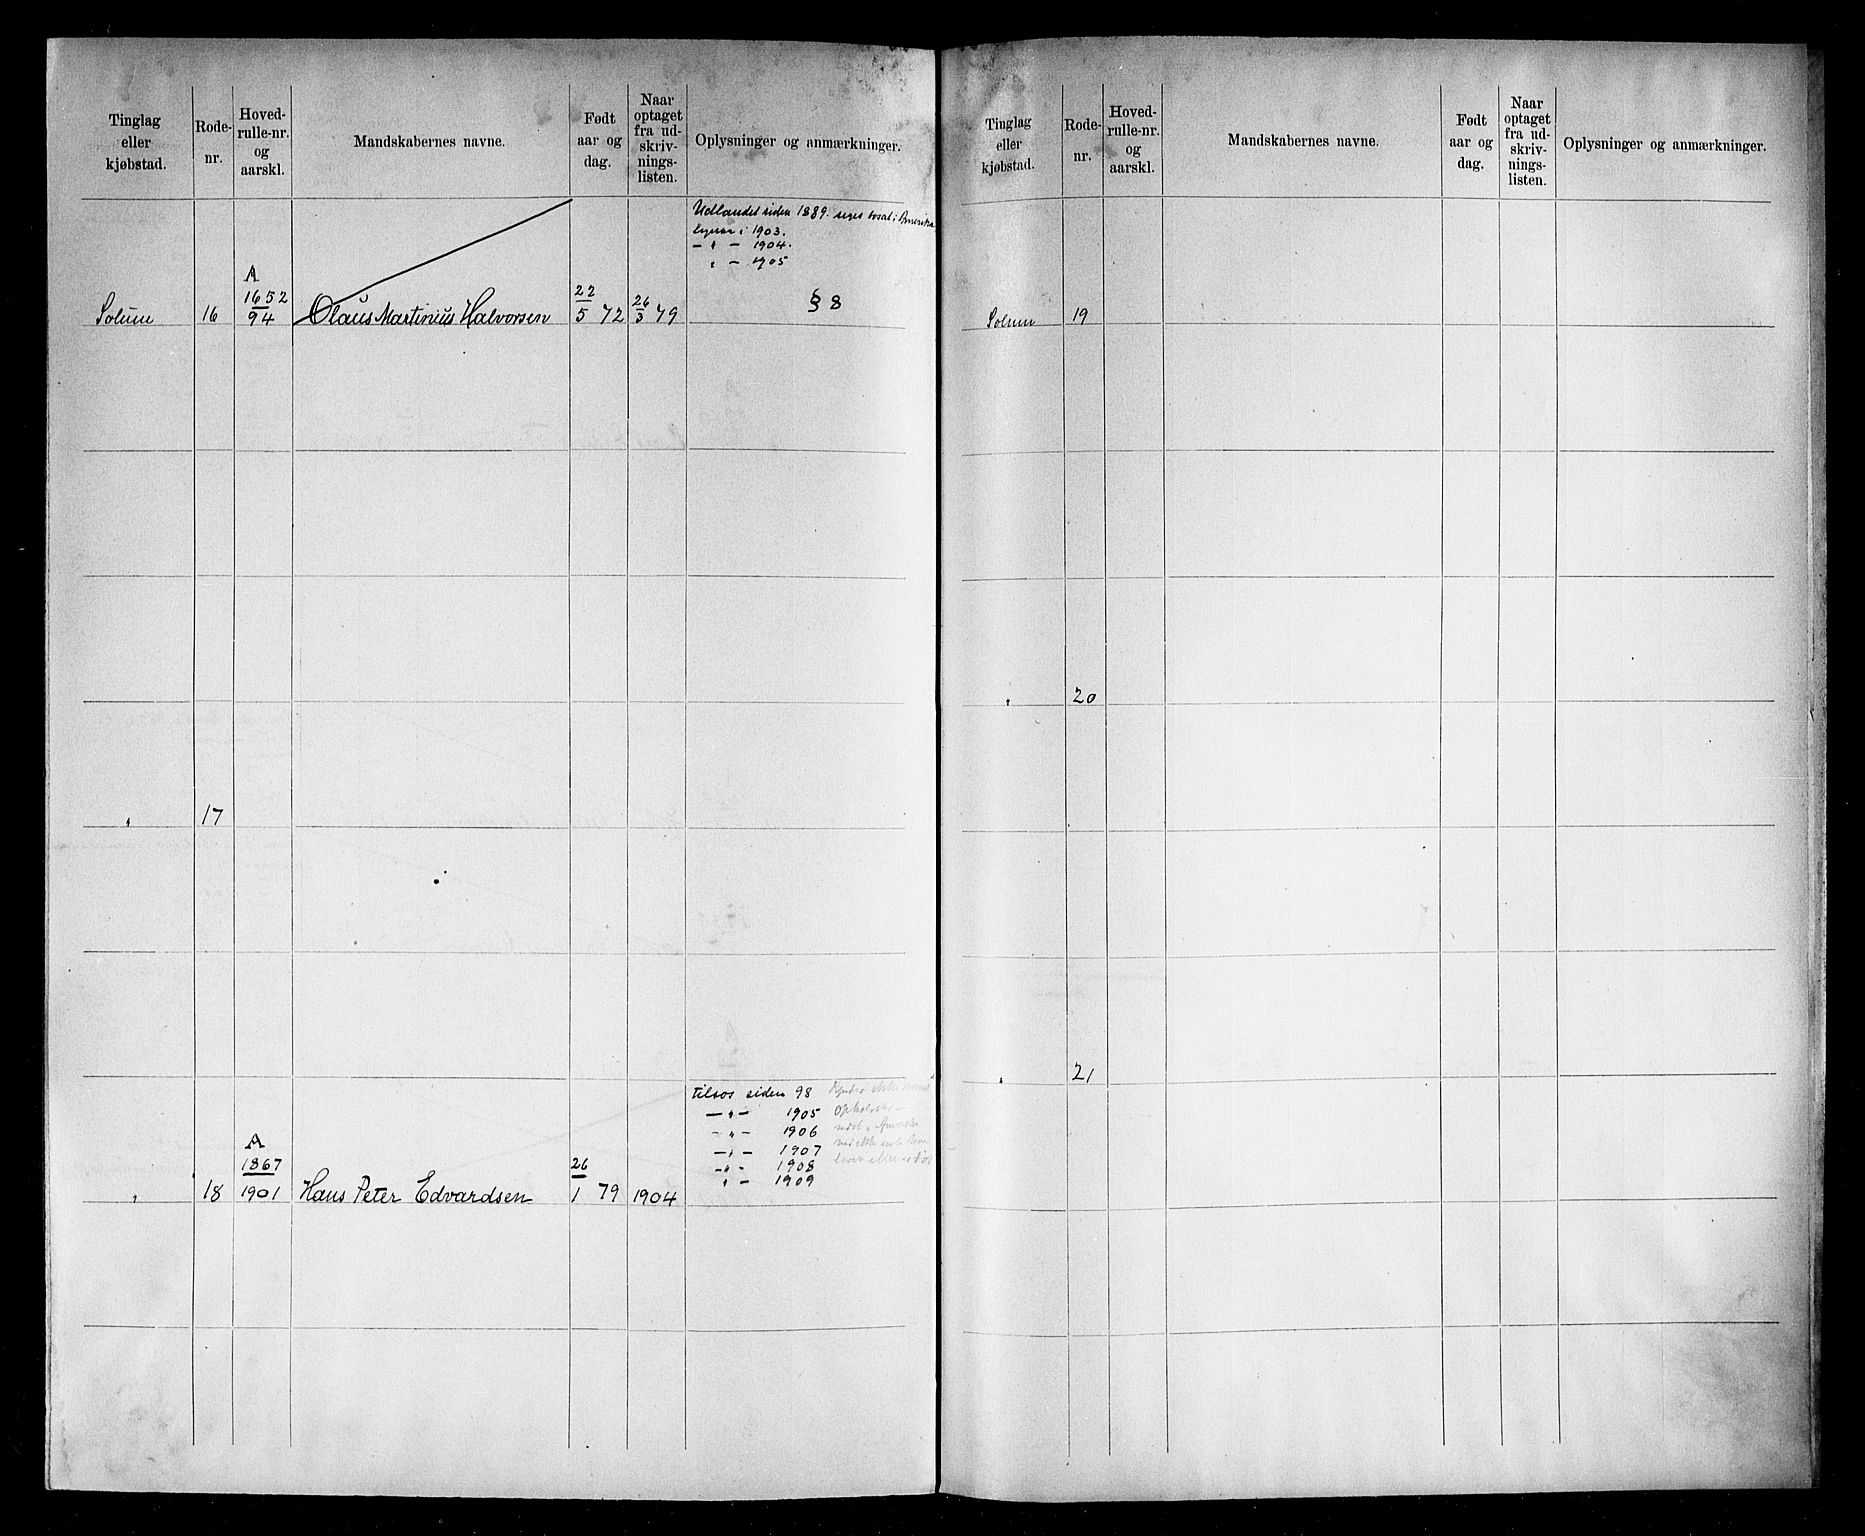 Tinglag eller kjøbstad.
Rode-nr.
Hoved-rulle-nr. og aarskl.
Mandskabernes navne.
Født aar og dag.
Naar optaget fra ud-skriv-nings-listen.
Oplysninger og anmærkninger.
Udlandet siden 1889. siges bosat i Amerika
i 1903.
— " — 1904.
" — 1905
A
Solum 16 1652/94 Olaus Martinius Halvorsen 22/5 72 26/3 79 § 8
" 17
tilsøs siden 98
— " — 1905
— " — 1906
— " — 1907
— " — 1908
" — 1909
A
" 18 1867/1901 Hans Peter Edvardsen 26/1 79 1904
Tinglag eller kjøbstad.
Rode-nr.
Hoved-rulle-nr. og aarskl.
Mandskabernes navne.
Født aar og dag.
Naar optaget fra ud-skriv-nings-listen.
Oplysninger og anmærkninger.
Solum 19
" 20
" 21